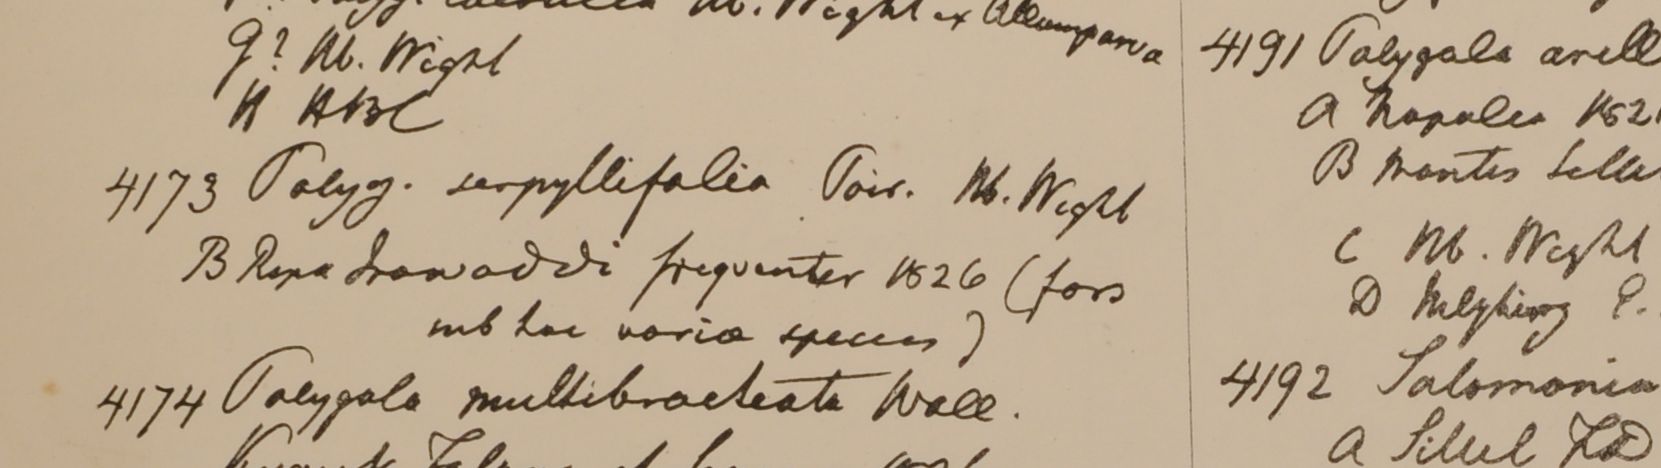 Wight ex
G? Hb. Wight
H HBC
4173 Polyg. serpyllifolia Poir. Hb. Wight
B Ripa Irawaddi frequenter 1826 (fors
sub hac variae species)
4174 Polygala multibracteata Wall.
4191 Polygala arill
A Napalea 1821
B Montes Sille
C Hb. Wight
D
4192 Salomonia
A Sillet FD